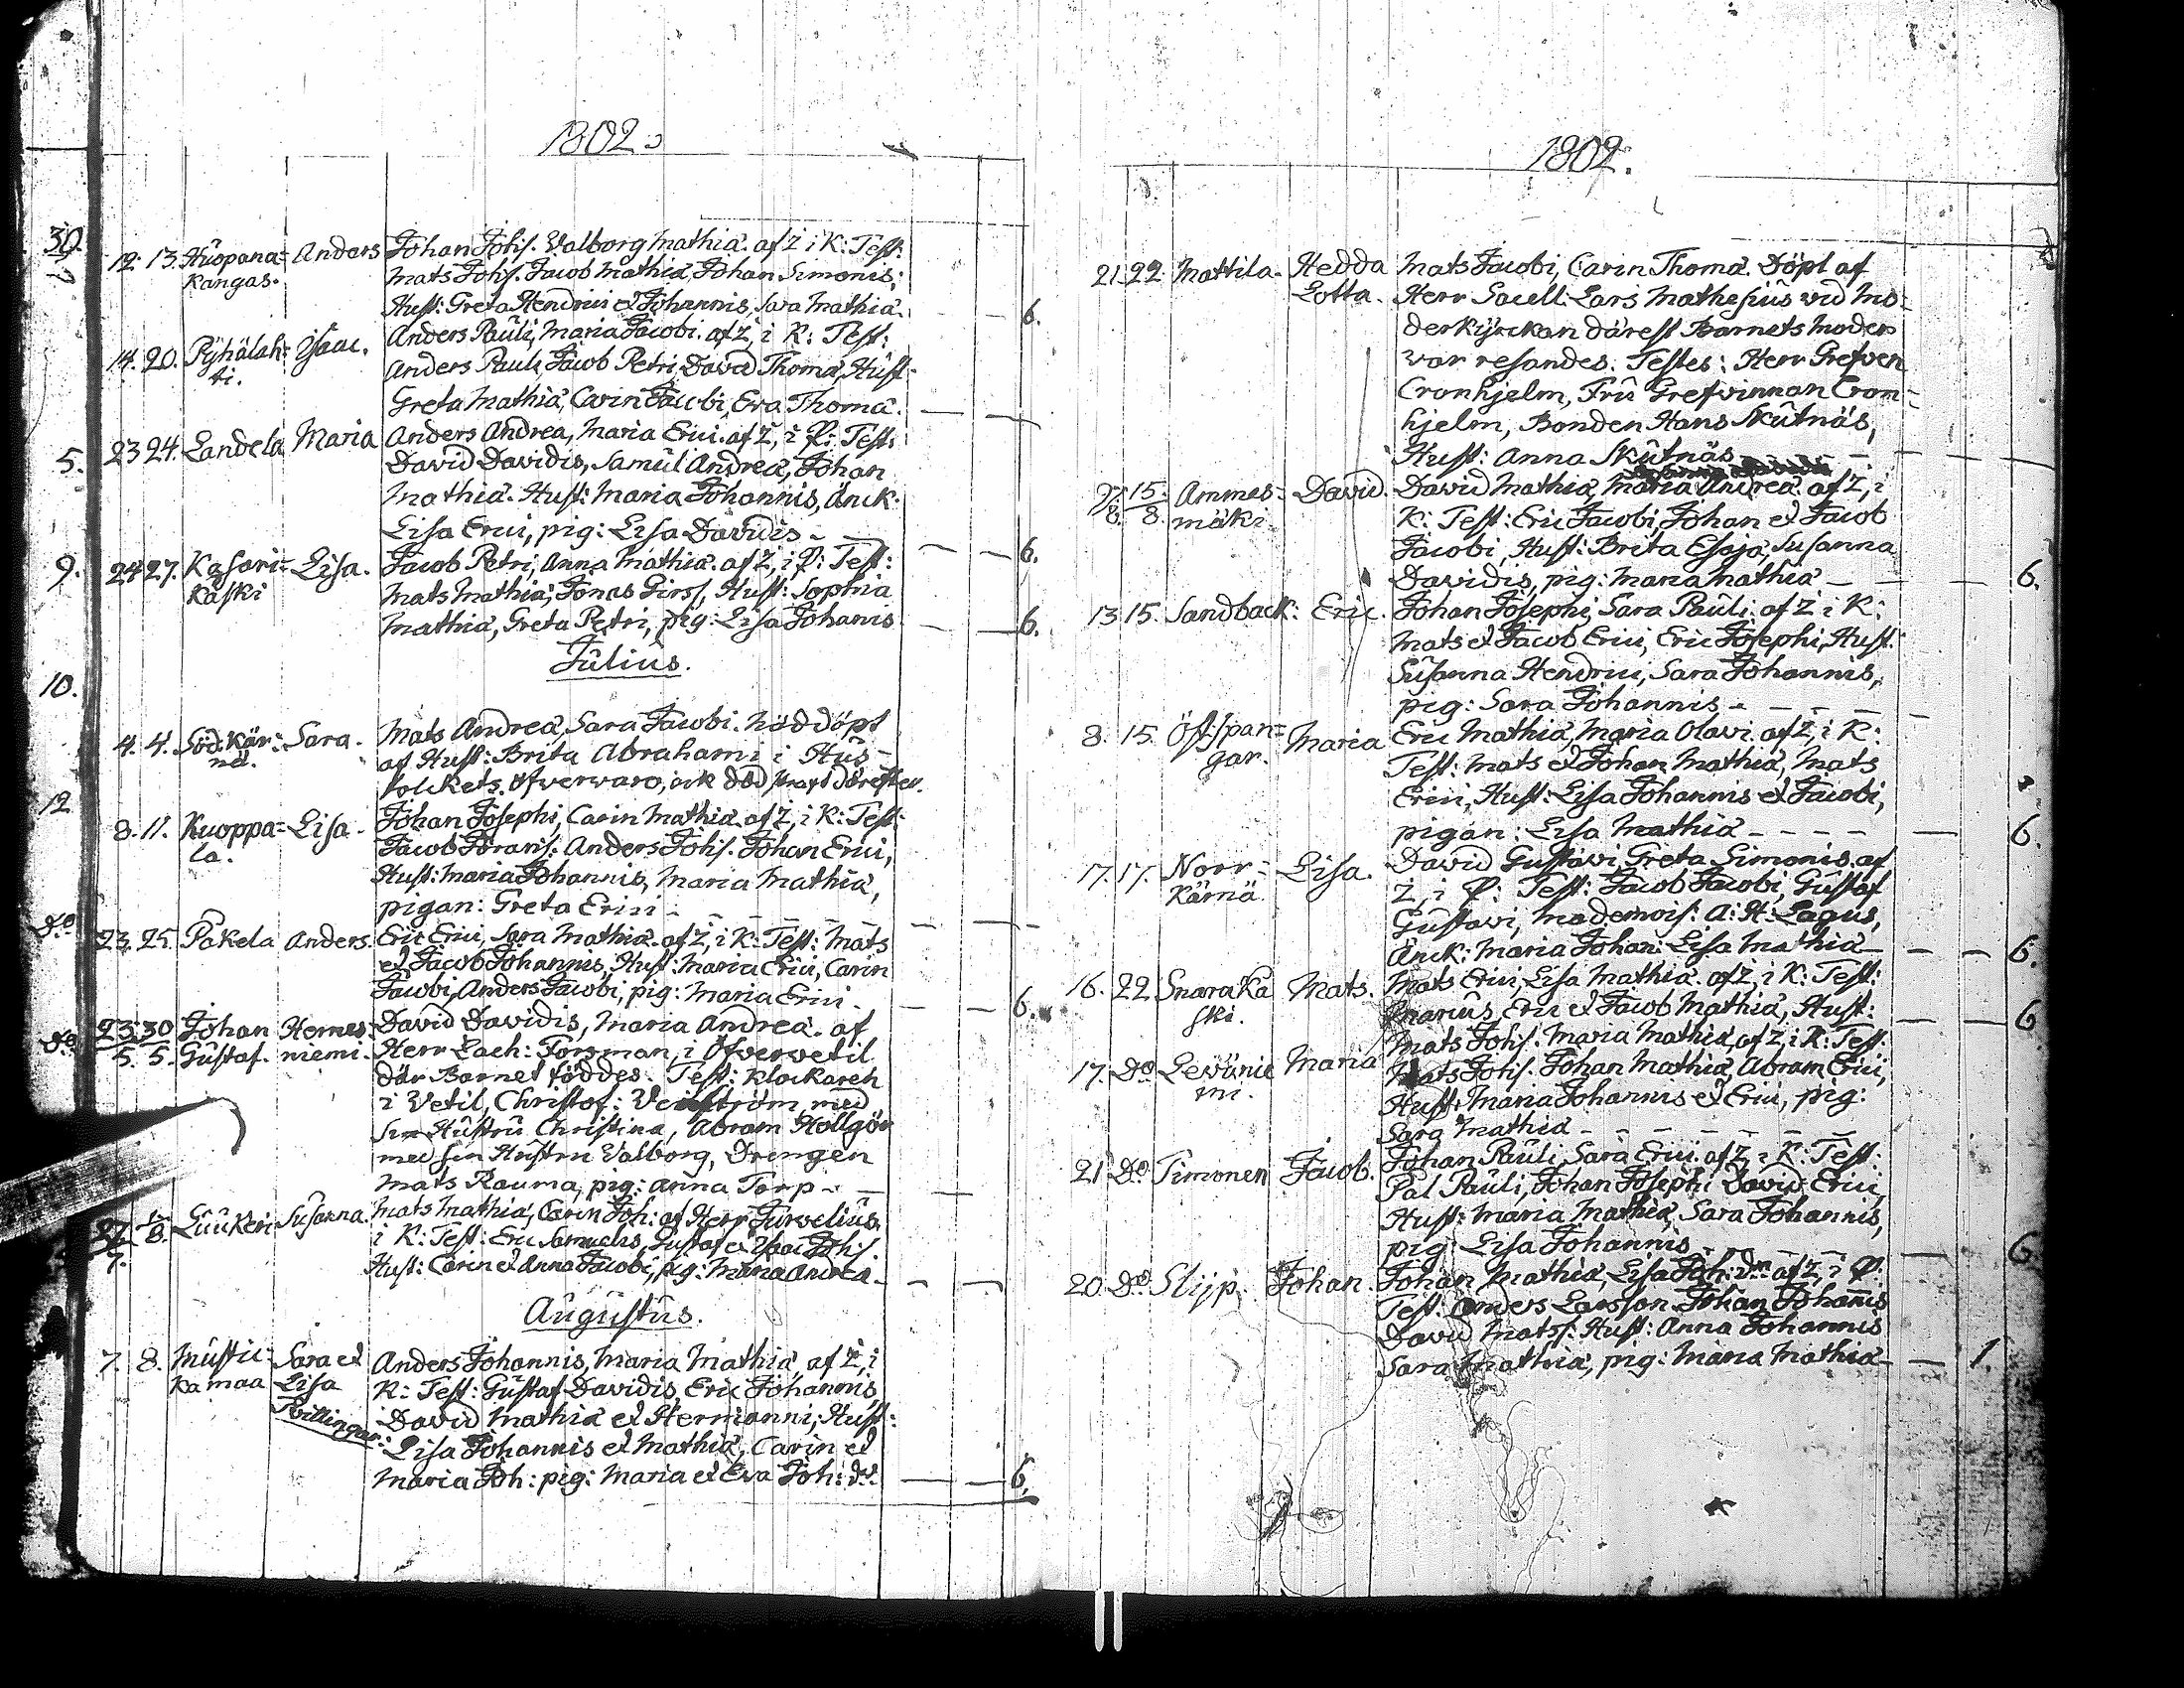 1802.
12. 13. Huopana= Anders Johan Johs. Valborg Mathiæ. af Z i K: Test:
kangas. Mats Johs. Jacob Mathiæ, Johan Simonis;
Hust: Greta Hendrici et Johannis, Sara Mathiæ. 6.
14. 20. Pyhälah= Isaac. Anders Pauli, Maria Jacobi. af Z, i K: Test:
ti. Anders Pauli, Jacob Petri, David Thomæ, Hust:
Greta Mathiæ, Carin Jacobi, Eva Thomæ.
23 24. Landela Maria Anders Andreæ, Maria Erici. af Z, i P: Test:
David Davidis, Samul Andreæ, Johan
Mathiæ. Hust: Maria Johannis, Änck:
Lisa Erici, pig: Lisa Davidis 6.
24 27. Kasari= Lisa. Jacob Petri, Anna Mathiæ. af Z, i P: Test:
kaski Mats Mathiæ, Jonas Girss, Hust: Sophia
Mathiæ, Greta Petri, pig: Lisa Johanis 6.
Julius.
4. 4. Söd: Kär: Sara. Mats Andreæ, Sara Jacobi. Nöddöpt
nä. af Hust: Brita Abrahami i Hus=
folckets öfvervaro, ock död strax därefter.
8. 11. Kuoppa= Lisa. Johan Josephi, Carin Mathiæ. af Z, i K: Test:
la. Jacob Anders Johs. Johan Erici,
Hust: Maria Johannis, Maria Mathiæ,
pigan: Greta Erici
23. 25. Pakela Anders. Eric Erici, Sara Mathiæ. af Z, i K: Test: Mats
et Jacob Johannis, Hust: Maria Erici, Carin
Jacobi, Anders Jacobi, pig: Maria Erici. 6.
23. 30 Johan Hernes David Davidis, Maria Andreæ. af
5. 5. Gustaf. niemi. Herr Zach: Forsman, i Öfvervetil
där Barnet föddes. Test: Klockaren
i Vetil, Christof: med
sin Hustru Christina, Abram Hollgön
med sin Hustru Valborg, Drengen
Mats Rauma, pig: Anna Torp
27 1/8. Luuken Susanna. Mats Mathiæ, Carin Joh: af Herr Jurvelius
7. i K: Test: Eric Samuelis, Gustaf et Isac Johs.
Hust: Carin et Anna Jacobi, pig: Maria Andreæ
Augustus.
7. 8. Mustic= Sara et Anders Johannis, Maria Mathiæ af Z, i
kamaa Lisa K: Test: Gustaf Davidis, Eric Johannis,
Tvillingar: David Mathiæ et Hermanni, Hust:
Lisa Johannis et Mathiæ, Carin et
Maria Joh: pig: Maria et Eva Joh: dr. 6.
30.
5.
9.
10.
12
Do
Do
1802.
21. 22. Mattila. Hedda Mats Jacobi, Carin Thomæ. Döpt af
Lotta. Herr Sacell: Lars Mathesius vid Mo=
derkyrckan därest Barnets Moder
var resandes. Testes: Herr Grefven
Cronhjelm, Fru Grefvinnan Cron=
hjelm, Bonden Hans Skutnäs,
Hust: Anna Skutnäs
15. Ammes= David. David Mathiæ, Maria Andreæ. af Z, i
8. 8. mäki K: Test: Eric Jacobi, Johan et Jacob
Jacobi, Hust: Brita Esajæ, Susanna
Davidis, pig: Maria Mathiæ 6.
13 15. Sandback: Eric. Johan Josephi, Sara Pauli. af Z i K:
Mats et Jacob Erici, Eric Josephi, Hust:
Susanna Hendrici, Sara Johannis,
pig: Sara Johannis
8. 15. Öst:span= Maria Eric Mathiæ, Maria Olavi. af Z, i K:
gar. Test: Mats et Johan Mathiæ, Mats
Erici, Hust: Lisa Johannis et Jacobi,
pigan: Lisa Mathiæ 6.
17. 17. Norr= Lisa. David Gustavi, Greta Simonis. af
Kärnä. Z, i P: Test: Jacob Jacobi, Gustaf
Gustavi, Mademois: A: H: Lagus,
Änck: Maria Johan: Lisa Mathiæ 6.
16. 22 Snaraka Mats. Mats Erici, Lisa Mathiæ. af Z, i K: Test:
ski. Marius, Eric et Jacob Mathiæ, Hust: 6
17. Do Levänie Maria Mats Johs. Maria Mathiæ, af Z, i K: Test:
mi. Mats Johs. Johan Mathiæ, Abram Erici,
Hust: Maria Johannis et Erici, pig:
Sara Mathiæ
21 Do Timonen Jacob. Johan Pauli, Sara Erici. af Z, i K: Test:
Pal Pauli, Johan Josephi, David Erici,
Hust: Maria Mathiæ, Sara Johannis,
pig: Lisa Johannis 6
20. Do Slijp. Johan. Johan Mathiæ, Lisa Joh: dr. af Z, i P:
Test: Anders Larsson, Johan Johannis
David Matss. Hust: Anna Johannis
Sara Mathiæ, pig: Maria Mathiæ 1.